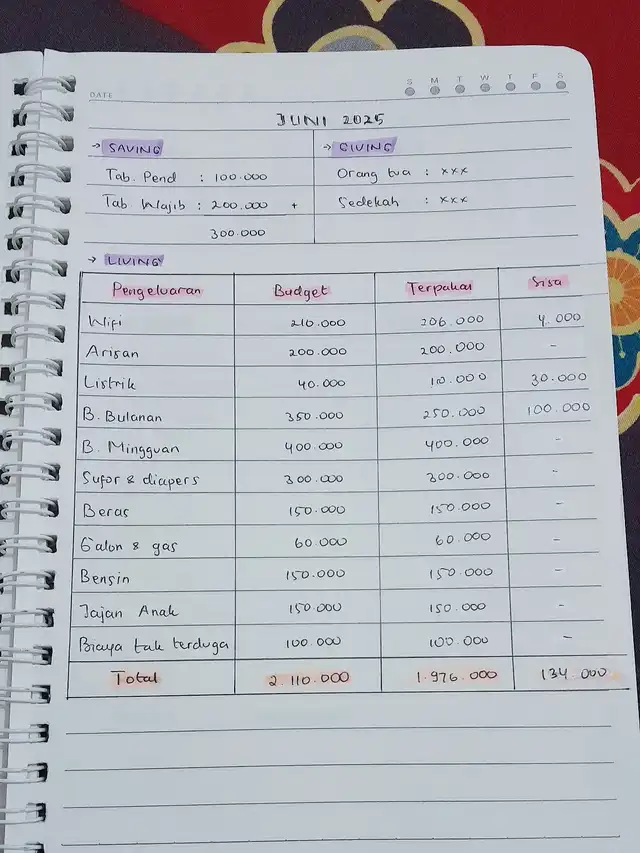 DATE
S M T W T F S
JUNI 2025
→ SAVING
Tab. Pend : 100.000
Tab. Wajib : 200.000 +
300.000
→ GIVING
Orang tua : xxx
Sedekah : xxx
→ LIVING
Pengeluaran Budget Terpakai Sisa
Wifi 210.000 206.000 4.000
Arisan 200.000 200.000 -
Listrik 40.000 10.000 30.000
B. Bulanan 350.000 250.000 100.000
B. Mingguan 400.000 400.000 -
Sufor & diapers 300.000 300.000 -
Beras 150.000 150.000 -
Galon & gas 60.000 60.000 -
Bensin 150.000 150.000 -
Jajan Anak 150.000 150.000 -
Biaya tak terduga 100.000 100.000 -
Total 2.110.000 1.976.000 134.000